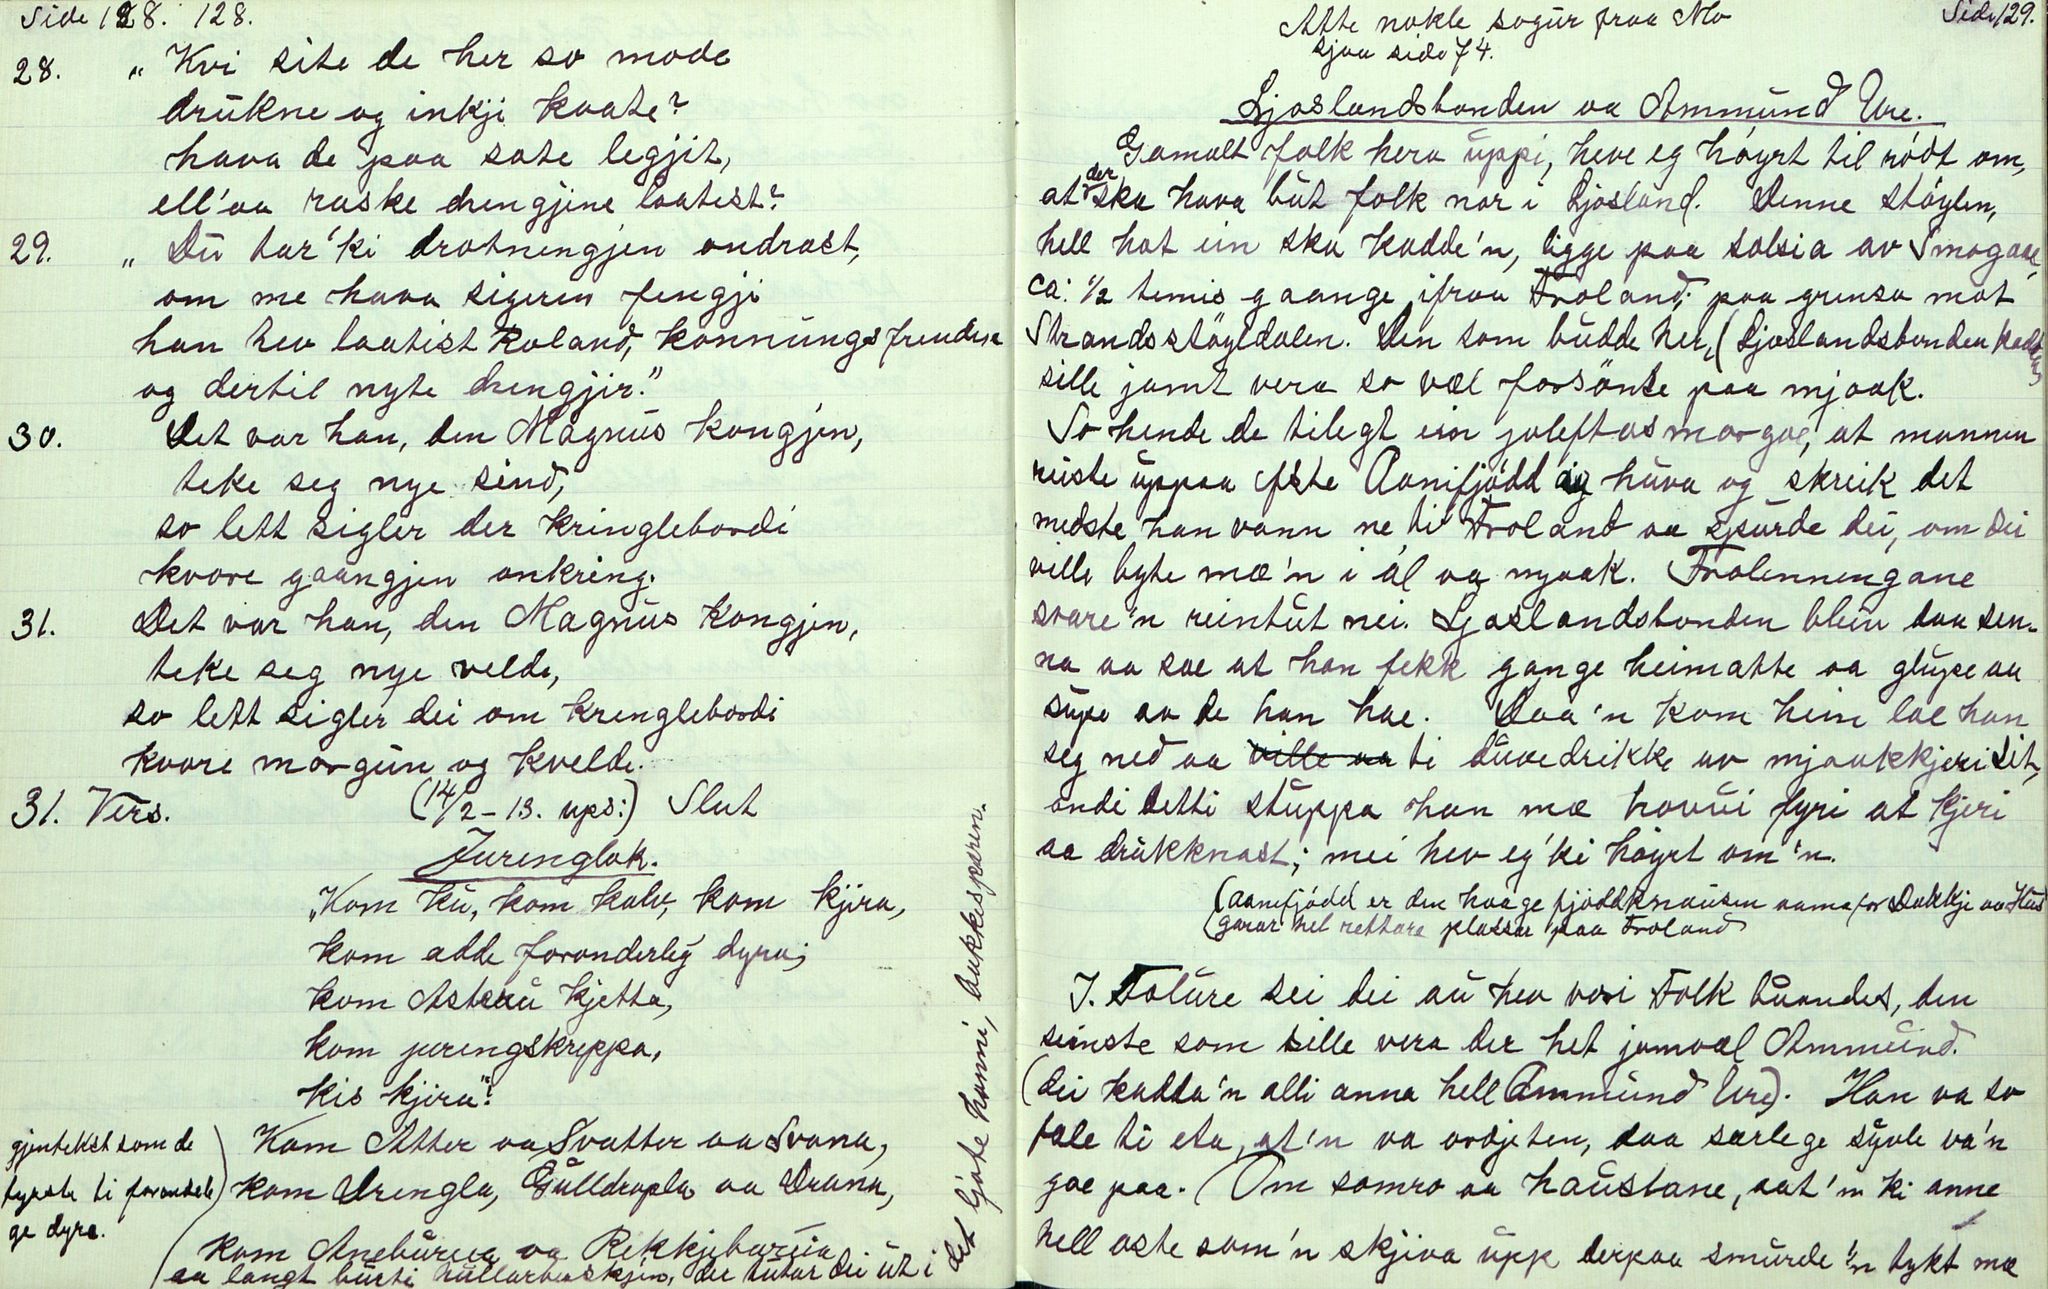 Side 128. 128.
28. „Kvi site de her so mode
drukne og inkji kaate?
hava de paa sote legjit,
ell' aa raske drengjine laatest?
29. „Du tar 'ki drotningjen ondrast,
om me hava sigeren fengji
han hev laatist Roland, konnungs frenden
og dertil nyte drengjir."
30. Det var han, den Magnus kongjen,
teke seg nye sind,
so lett sigler der kringlebordi
kvore gaangjen onkring.
31. Det var han, den Magnus Kongjen,
teke seg nye velde,
so lett sigler dei om krenglebordi
kvore morgun og kvelde.
31. Vers. (14/2-13. ups:) Slut
Jurenglok.
„Kom ku, kom kalv, kom kjira,
kom adde foronderleg dyra;
kom Asterau kjetta,
kom jurengskreppa,
kis kjira".
gjentekst som de
fyrste ti forondele
ge dyra.
Kom Atter aa Svatter aa Svana,
kom Drengla, Gulldropla aa Drana,
kom Anebura aa Rekkjebaruia
aa langt burti hullarbuskjen, der tutar dei ut i
det ljote honni, bukkesporen.
Side 129.
Atte nokle sogur fraa Mo
sjaa side 74.
Ljoslandsbonden aa Ammund Ure.
Gamalt folk hera uppi, heve eg höyrt til rödt om,
at der ska hava but folk nor i Ljosland. Denne stöylen,
hell hot ein ska kadde'n, ligge paa solsia av Smogaae,
ca: 1/2 temis gaange ifraa Froland; paa grensa mot
Strandsstöyldalen. Den som budde her, (Ljoslandsbonden kadda 'n)
sille jamt vera so væl forsönte paa mjaak.
So hende de tilegt ein joleftasmorgoe, at mannen
reiste uppaa efste Aanifjödd i huva og skreik det
medste han vann ne ti Froland aa spurde dei, om dei
ville byte mæ'n i ål aa myaak. Frolenningane
svare 'n reintut nei. Ljoslandsbonden blein daa sen-
na aa sae at han fekk gange heimatte aa glupe aa
supe av de han hae. Daa'n kom heim lae han
seg ned aa ti duvedrikke av mjaukkjeri sit,
ondi detti stuppa han mæ hovui fyri at kjeri
aa drukknast; mei hev eg 'ki höyrt om 'n.
(aanifjödd er den haage fjöddknausen aama for Dokkje aa Hus
garar hel rettare plassar paa Froland)
I. Foture sei dei au hev vori Folk buandes, den
seinste som sille vera der het jamvæl Ammund.
(dei kadda'n alli anna hell Ammund Ure). Han va so
fole ti eta, at'n va ordjeten, daa særlege suvle va'n
goe paa. (Om somro aa haustane, aat'n ki anne
hell oste som'n skjiva upp derpaa smurde 'n tykt mæ